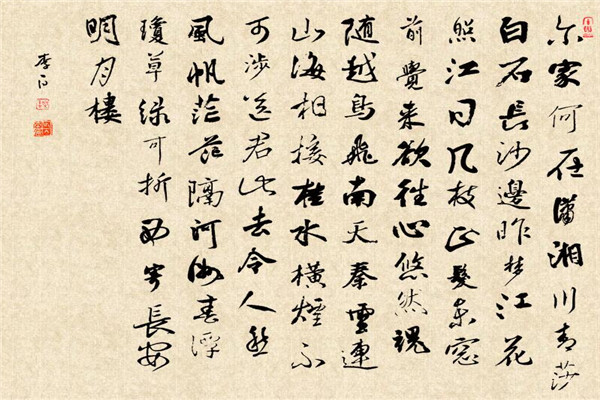 尔家何在瀟湘川青莎
白石長沙邊昨梦江花
照江日几枝正發东窓
前覺来欲往心悠然魂
随越鳥飛南天秦雲連
山海相接桂水横煙不
可涉送君此去令人愁
風帆茫茫隔河洲春潭
瓊草绿可折西寄長安
明月樓
李白